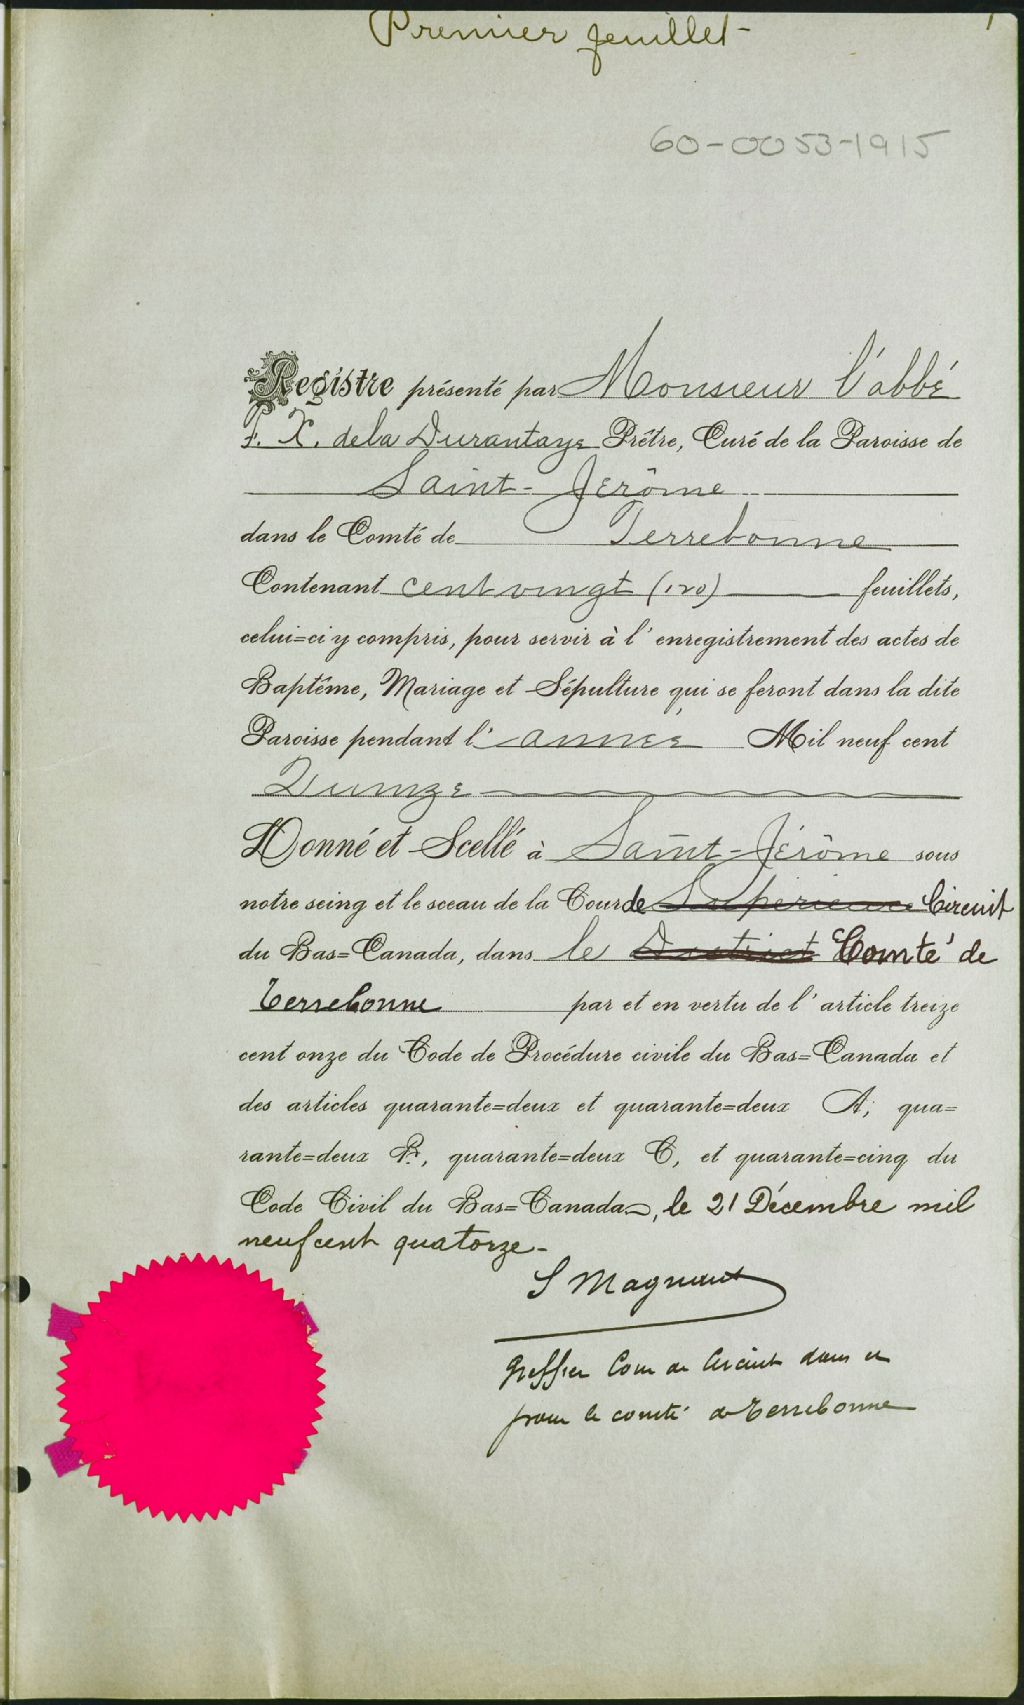 Premier feuillet -
1
60-0053-1915
Registre présenté par Monsieur l'abbé
F. X. de la Durantaye Prêtre, Curé de la Paroisse de
Saint-Jérôme
dans le Comté de Terrebonne
Contenant cent vingt (120) feuillets,
celui=ci y compris, pour servir à l'enregistrement des actes de
Baptême, Mariage et Sépulture qui se feront dans la dite
Paroisse pendant l'année Mil neuf cent
Quinze
Donné et Scellé à Saint-Jérôme sous
notre seing et le sceau de la Cour de Supérieure Circuit
du Bas=Canada, dans le District Comté de
Terrebonne par et en vertu de l'article treize
cent onze du Code de Procédure civile du Bas=Canada et
des articles quarante=deux et quarante=deux A, qua=
rante=deux B, quarante=deux C, et quarante=cinq du
Code Civil du Bas=Canada, le 21 Décembre mil
neuf cent quatorze -
J Magnant
Greffier Cour de Circuit dans et
pour le comté de Terrebonne